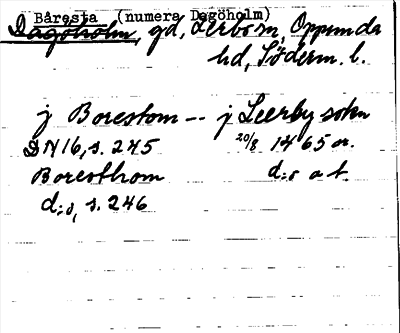 Båresta (numera Dagöholm)
Dagöholm, gd, Lerbo sn, Oppunda
hd, Söderm. l.
j Borestom -- j Leerby sokn
DN 16, s. 245 20/8 1465 or.
Boresthom d:o a t.
d:o, s. 246